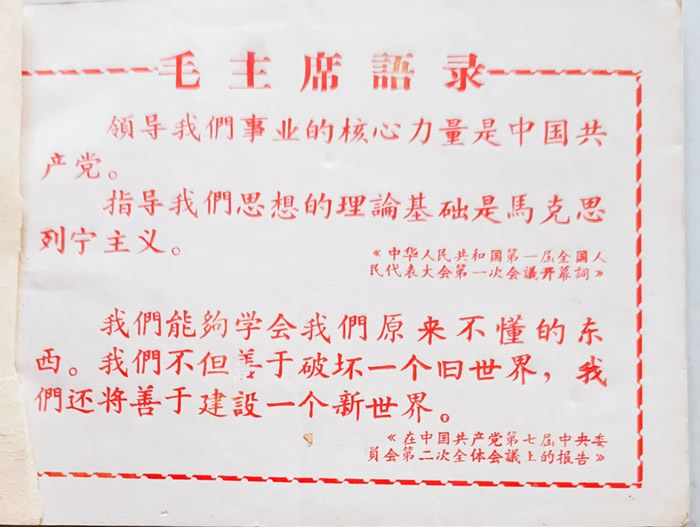 毛主席語录
領导我們事业的核心力量是中国共
产党。
指导我們思想的理論基础是馬克思
列宁主义。
《中华人民共和国第一届全国人
民代表大会第一次会議开幕詞》
我們能夠学会我們原来不懂的东
西。我們不但善于破坏一个旧世界，我
們还将善于建設一个新世界。
《在中国共产党第七届中央委
員会第二次全体会議上的报告》